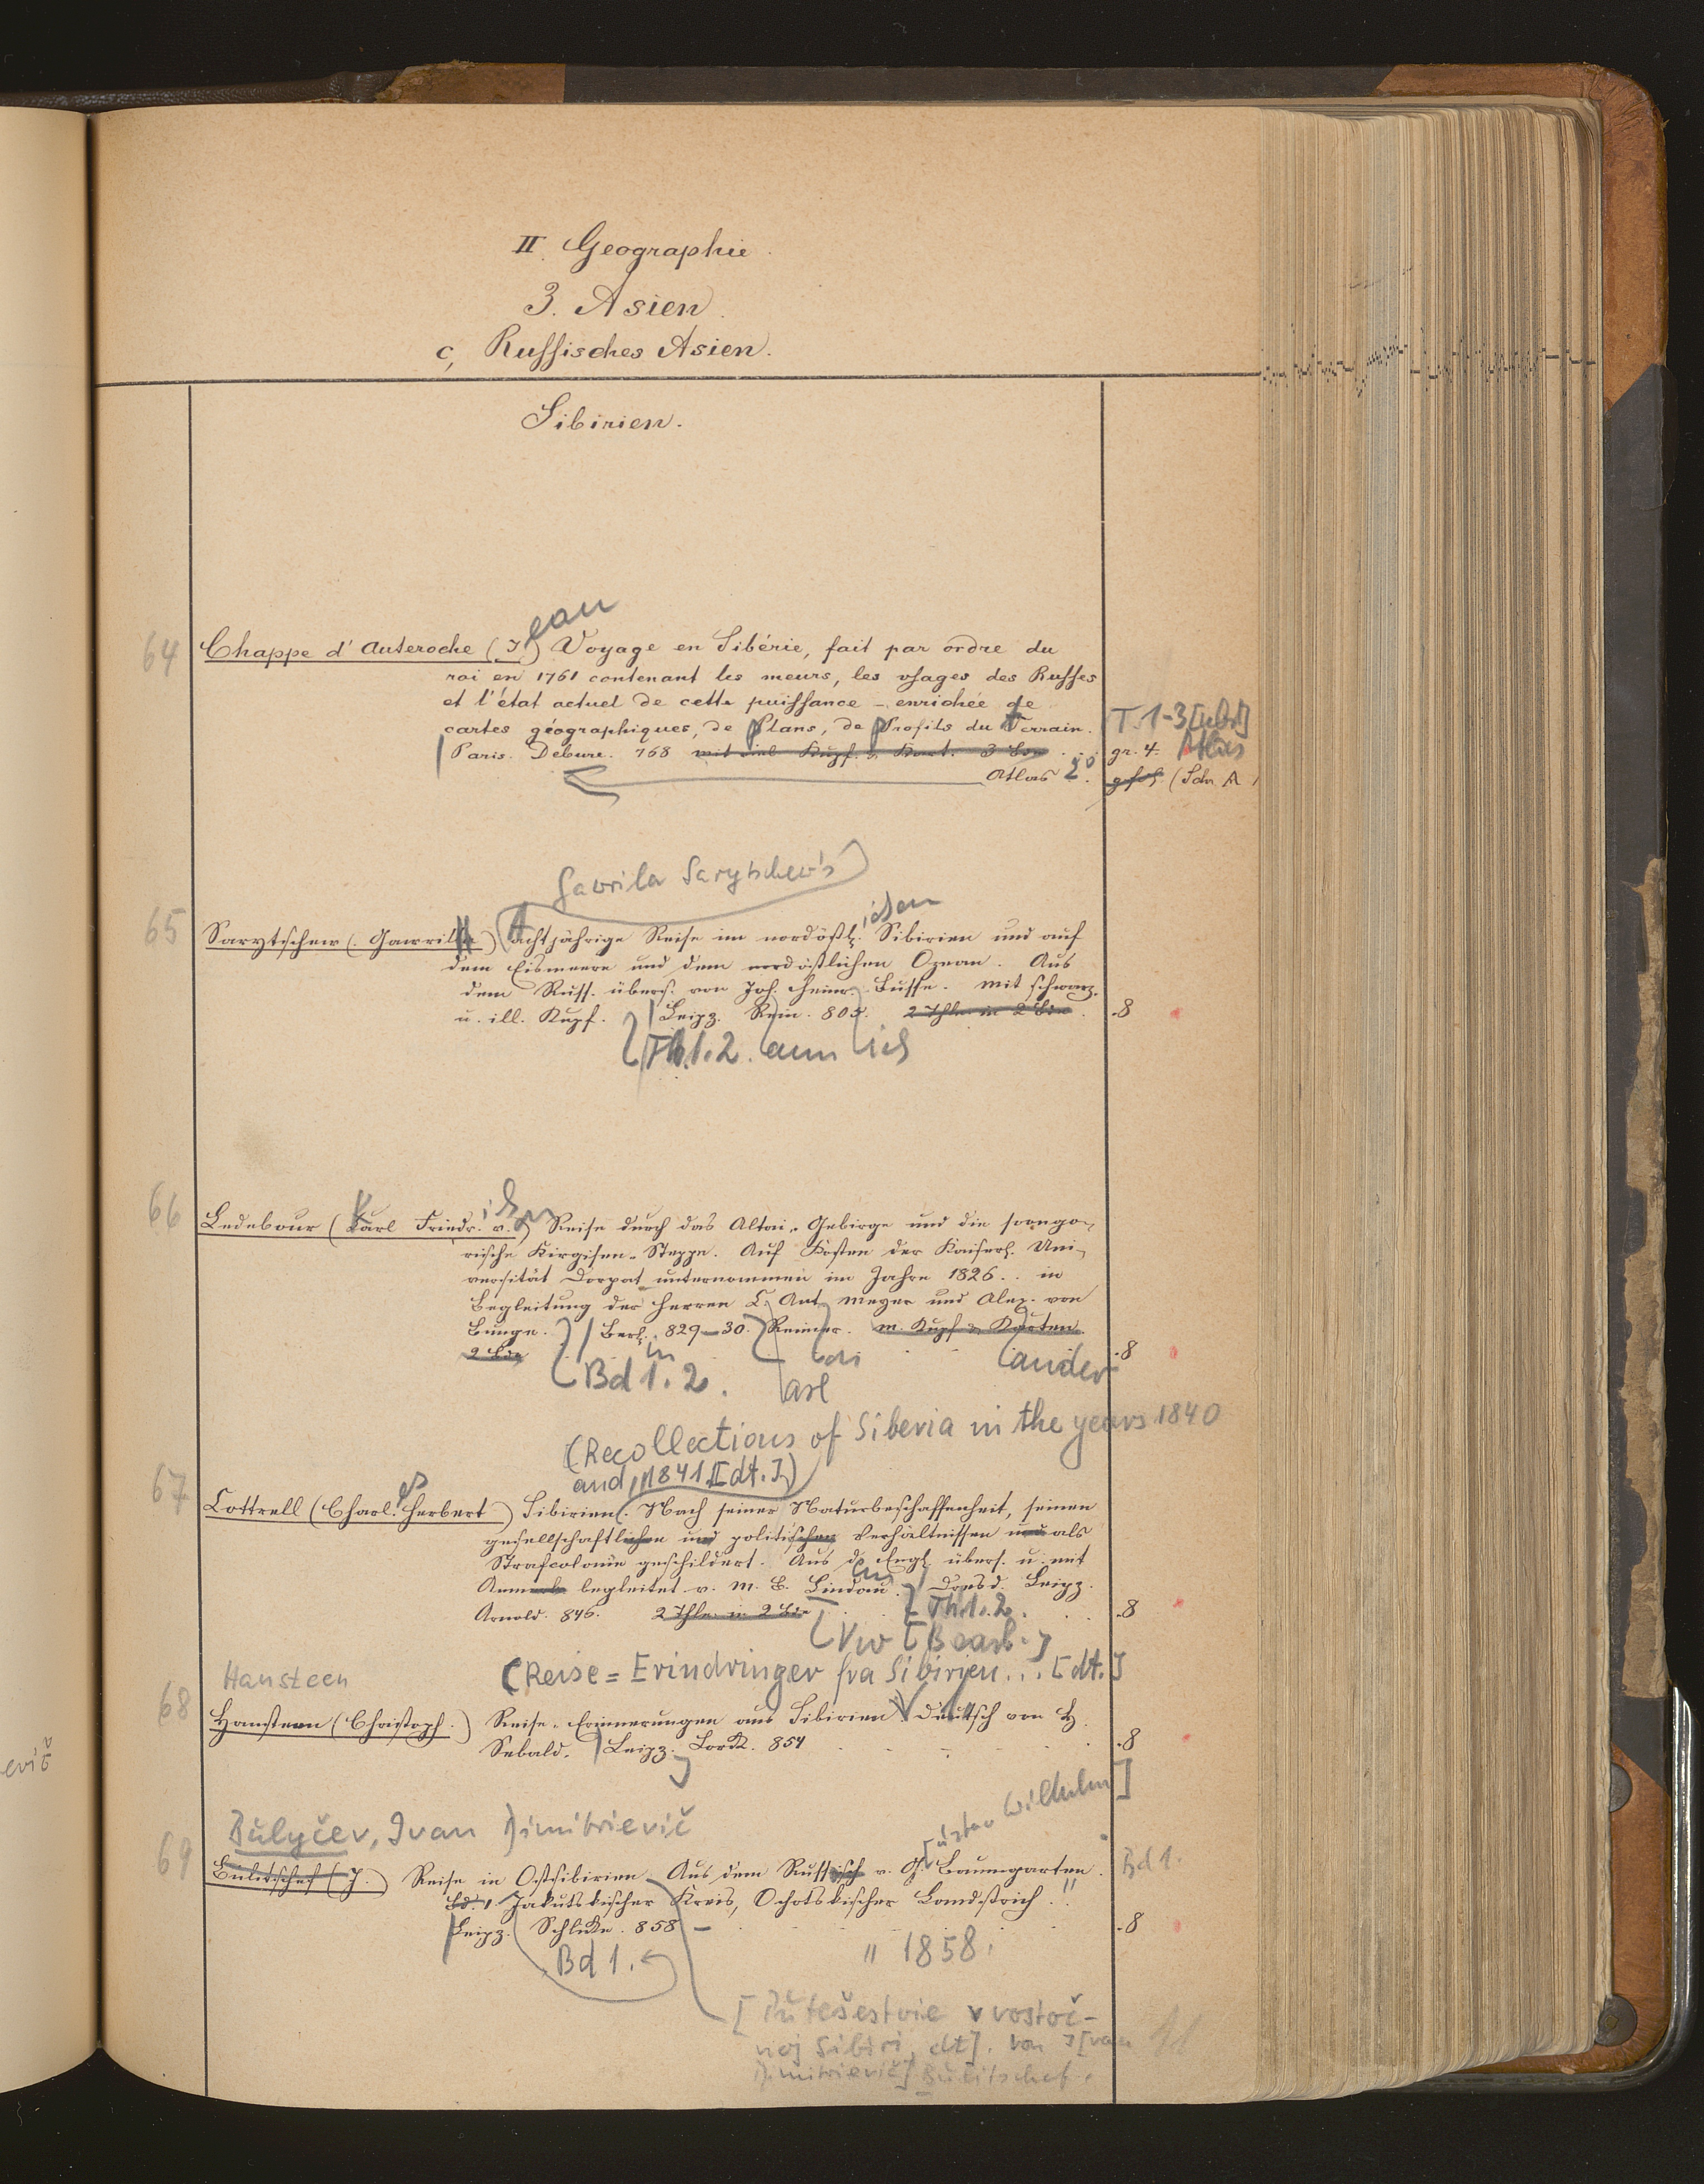 II. Geographie.
3. Asien.
c, Russisches Asien.
Sibirien.
ean
64 Chappe d'Auteroche (J.) Voyage en Sibérie, fait par ordre du
roi en 1761 contenant les meurs, les usages des Russes
et l'état actuel de cette puissance – enrichée de
cartes géographiques, de Plans, de Profils du Terrain. T. 1-3 [nebst]
Paris. Debure. 768 mit viel Kupf. u. Kart. 3 Bde gr. 4. Atlas
Atlas 2°. gr. fol. (Schr. A
Gavrila Sarytschew's
ischen
65 Sarytschew (Gawrila) Achtjährige Reise im nordöstl. Sibirien und auf
dem Eismeere und dem nordöstlichen Ozean. Aus
dem Russ. übers. von Joh. Heinr. Busse. mit schwarz.
u. ill. Kupf. Leipz. Rein. 805. 2 Thle in 2 Bde. .8
Th. 1.2. ann ich
ich
66 Ledebour (Karl Friedr. v.) Reise durch das Altai-Gebirge und die soongo-
rische Kirgisen-Steppe. Auf Kosten der Kaiserl. Uni-
versität Dorpat unternommen im Jahre 1826.. in
Begleitung der Herren C. Ant. Meyer und Alex. von
Bunge. Berl. 829–30. Reimer. m. Kupf. u. Karten.
2 Bde .8
in on ander
Bd 1.2. arl
(Recollections of Siberia in the years 1840
and 1841 [dt.])
es
67 Cottrell (Charl. Herbert) Sibirien. Nach seiner Naturbeschaffenheit, seinen
gesellschaftlichen und politischen Verhältnissen und als
Strafcolonie geschildert. Aus d. Engl. übers. u. mit
Anmerk. begleitet v. M. B. Lindau. Dresd. Leipz.
Arnold. 846. 2 Thle in 2 Bde Th. 1.2. .8
(Vw [Bearb.]
Hansteen (Reise = Erindringer fra Sibirien... [dt.]
68 Hansteen (Christoph.) Reise-Erinnerungen aus Sibirien. Deutsch von H.
Sebald. Leipz. Lorck. 854 .8
Bulyčev, Ivan Dimitrievič [ustav Wilhelm]
69 Bulitschef (J.) Reise in Ostsibirien. Aus dem Russisch v. G. Baumgarten. Bd 1.
Bd. 1. Jakutskischer Kreis, Ochotskischer Landstrich.
Leipz. Schlicke. 858 – .8
Bd 1. " 1858.
[Putešestvie v vostoč-
noj Sibiri, dt]. von I[van
Dimitrievič] Bulitschef.
evič